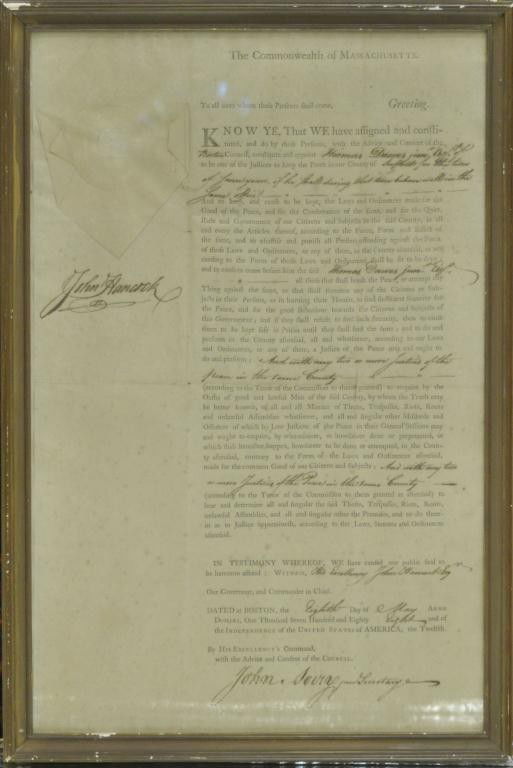 The Commonwealth of MASSACHUSETTS.
To all unto whom these Presents shall come, Greeting.
KNOW YE, That WE have assigned and consti-
tuted, and do by these Presents, with the Advice and Consent of the
Council, constitute and appoint Thomas Dawes junr. Esqr. of
Boston
to be one of the Justices to keep the Peace in our County of Suffolk for the term
of seven years, if he shall during that time behave well in the
same Office
And to keep, and cause to be kept, the Laws and Ordinances made for the
Good of the Peace, and for the Conservation of the same, and for the Quiet,
Rule and Government of our Citizens and Subjects in the said County, in all
and every the Articles thereof, according to the Force, Form and Effect of
the same, and to chastise and punish all Persons offending against the Form
of those Laws and Ordinances, or any of them, in the County aforesaid, as ac-
cording to the Form of those Laws and Ordinances shall be fit to be done;
and to cause to come before him the said Thomas Dawes junr. Esqr.
all those that shall break the Peace, or attempt any
Thing against the same, or that shall threaten any of the Citizens or Sub-
jects in their Persons, or in burning their Houses, to find sufficient Security for
the Peace, and for the good Behaviour towards the Citizens and Subjects of
this Government; and if they shall refuse to find such Security, then to cause
them to be kept safe in Prison until they shall find the same; and to do and
perform in the County aforesaid, all and whatsoever, according to our Laws
and Ordinances, or any of them, a Justice of the Peace may and ought to
do and perform; And with any two or more Justices of the
peace in the same County
(according to the Tenor of the Commission to them granted) to enquire by the
Oaths of good and lawful Men of the said County, by whom the Truth may
be better known, of all and all Manner of Thefts, Trespasses, Riots, Routs
and unlawful Assemblies whatsoever, and all and singular other Misdeeds and
Offences of which by Law Justices of the Peace in their General Sessions may
and ought to enquire, by whomsoever, or howsoever done or perpetrated, or
which shall hereafter happen, howsoever to be done, or attempted, in the Coun-
ty aforesaid, contrary to the Form of the Laws and Ordinances aforesaid,
made for the common Good of our Citizens and Subjects; And with any two
or more Justices of the Peace in the same County
(according to the Tenor of the Commission to them granted as aforesaid) to
hear and determine all and singular the said Thefts, Trespasses, Riots, Routs,
unlawful Assemblies, and all and singular other the Premises, and to do there-
in as to Justice appertaineth, according to the Laws, Statutes and Ordinances
aforesaid.
John Hancock
IN TESTIMONY WHEREOF, WE have caused our public Seal to
be hereunto affixed: WITNESS, His Excellency John Hancock Esqr
Our Governour, and Commander in Chief.
DATED at BOSTON, the Eighth Day of May ANNO
DOMINI, One Thousand Seven Hundred and Eighty Eight and of
the INDEPENDENCE of the UNITED STATES of AMERICA, the Twelfth.
By His EXCELLENCY'S Command,
with the Advice and Consent of the COUNCIL.
John Avery junr Secretary